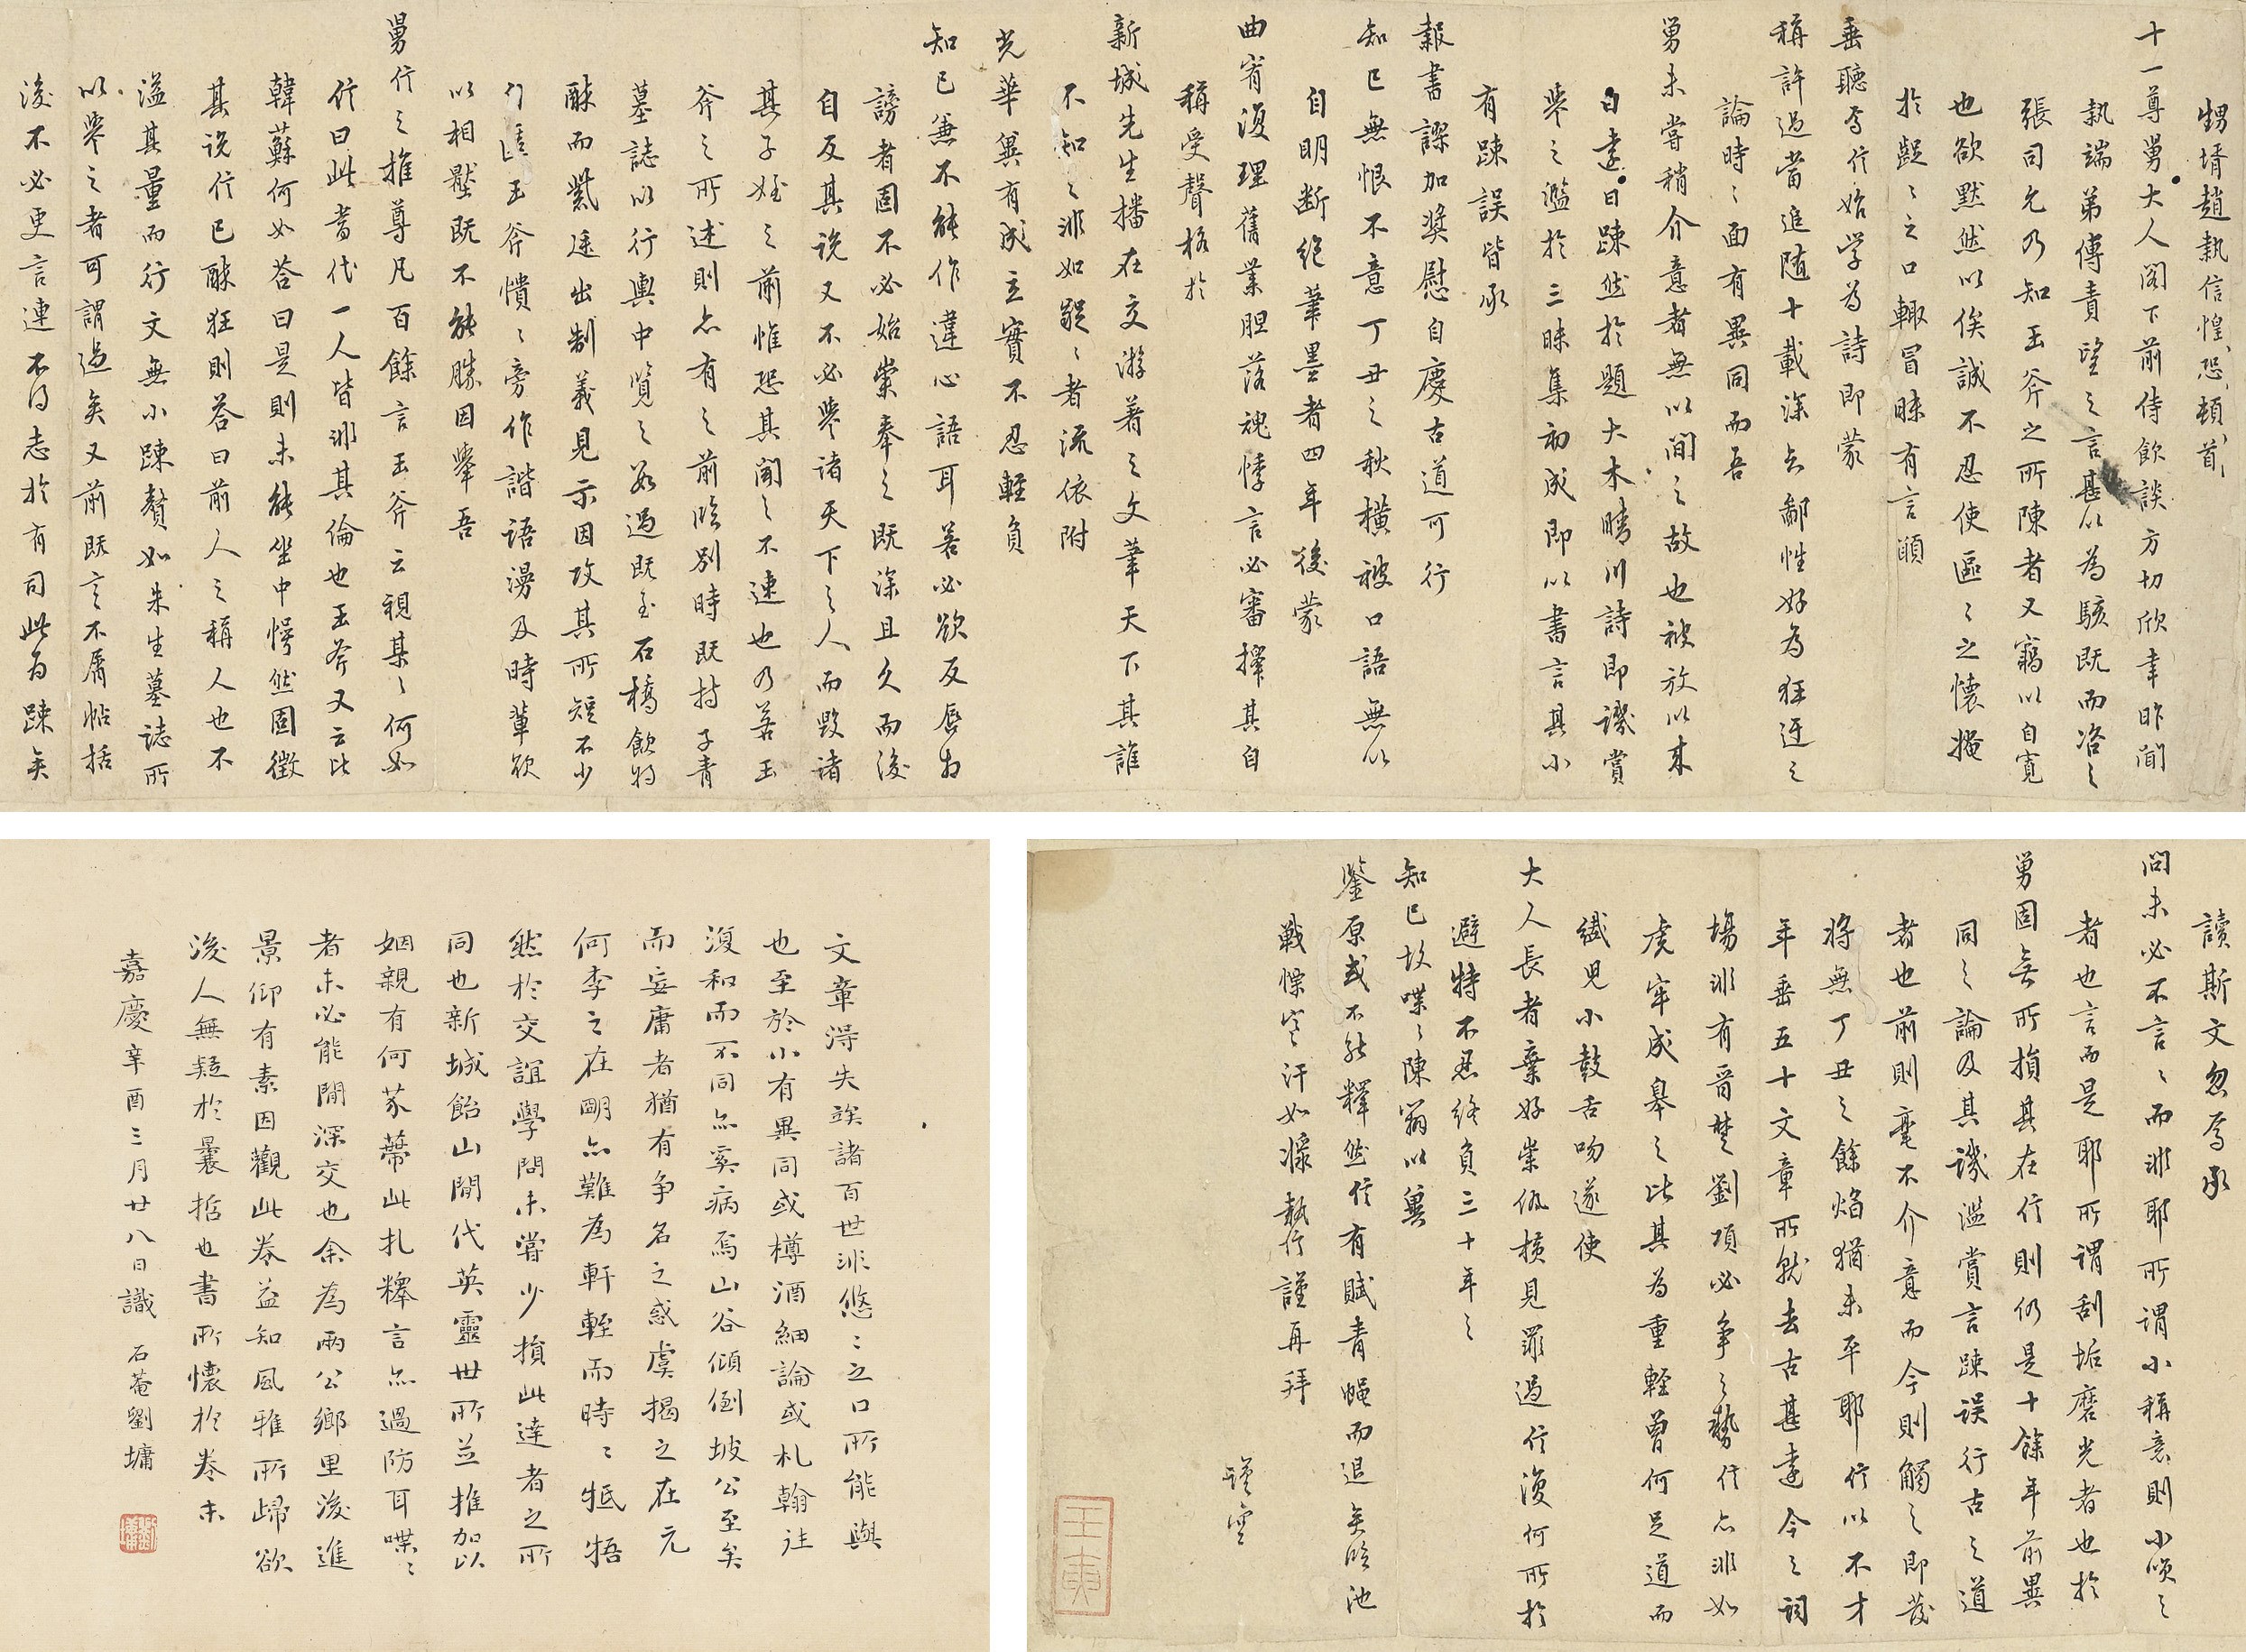 甥壻趙執信惶恐頓首
十一尊舅大人閣下前侍飲談方切欣幸昨間
執端弟傳責望之言甚以為駭既而咨之
張司允乃知玉斧之所陳者又竊以自寬
也欲默然以俟誠不忍使區〻之懷掩
於齪〻之口輒冒昧有言願
垂聽焉信始学為詩即蒙
稱許過當追随十載深知鄙性好為狂迂之
論時〻面有異同而吾
舅未嘗稍介意者無以間之故也被放以来
日遠日踈然於題大木晴川詩即譏賞
舉之濫於三昧集初成即以書言其小
有踈誤皆承
報書謬加奨慰自慶古道可行
知已無恨不意丁丑之秋橫被口語無以
自明断絕筆墨者四年後蒙
曲宥復理舊業胆落魂悸言必審擇其自
稱受聲格於
新城先生播在交游著之文筆天下其誰
不知之非如齪〻者流依附
光華兾有成立實不忍輕負
知已兼不能作違心語耳若必欲反唇相
謗者固不必始崇奉之既深且久而後
自反其说又不必舉諸天下之人而毀諸
其子姪之前惟恐其聞之不速也乃若玉
斧之所述則亦有之前临別時既持子青
墓誌以行輿中覧之為過既至石橋飲特
酥而甗遥出制義見示因攻其所短不少
玉斧憒〻旁作諧語漫及時輩欲
以相壓既不能勝因舉吾
舅行之推尊凡百餘言玉斧云視某〻何如
信曰此當代一人皆非其倫也玉斧又云比
韓蘇何如荅曰是則未能坐中愕然固徵
其说信已酥狂則荅曰前人之稱人也不
溢其量而行文無小踈贅如朱生墓誌所
以舉之者可謂過矣又前既言不屑帖括
後不必更言連不得志於有司此为踈矣
讀斯文忽焉承
問未必不言〻而非耶所謂小稱意則小順之
者也言而是耶所謂刮垢磨光者也於
舅固無所損其在信則仍是十餘年前異
同之論及其譏濫賞言踈误行古之道
者也前則毫不介意而今則觸之即發
将無丁丑之餘焰猶未平耶信以不才
年垂五十文章所就去古甚遠今之詞
場非有晉楚劉項必争之勢信亦非如
虎牢成皋之比其為重輕曽何足道而
纎児小鼓舌吻遂使
大人長者棄好崇仇横見罪過信復何所於
避特不忍终負三十年之
知已故喋〻陳窮以兾
鑒原或不能釋然信有賦青蝿而退矣临池
戰慄背汗如濠執信謹再拜
謹空
文章淂失竢諸百世非悠〻之口所能與
也至於小有異同或樽酒細論或札翰往
復和而不同亦奚病焉山谷傾倒坡公至矣
而妄庸者猶有争名之惑虞揭之在元
何李之在明亦難為軒輊而時〻牴牾
然於交誼學問未嘗少損此達者之所
同也新城飴山間代英靈世所並推加以
姻親有何芥蔕此扎繹言亦過防耳喋〻
者未必能間深交也余為兩公鄉里後進
景仰有素因觀此卷益知風雅所歸欲
後人無疑於曩哲也書所懷於卷末
嘉慶辛酉三月廿八日識 石菴劉墉
劉墉